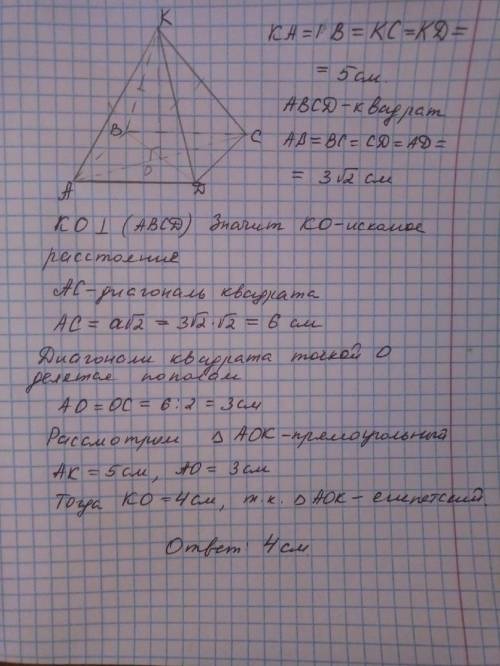 K
B
C
O
A
D
KA = KB = KC = KD =
= 5 см
ABCD - квадрат
AB = BC = CD = AD =
= 3√2 см
KO ⊥ (ABCD) Значит KO - искомое
расстояние
AC - диагональ квадрата
AC = a√2 = 3√2·√2 = 6 см
Диагонали квадрата точкой O
делятся пополам
AO = OC = 6 : 2 = 3 см
Рассмотрим △ AOK - прямоугольный
AK = 5 см, AO = 3 см
Тогда KO = 4 см, т.к. △ AOK - египетский.
Ответ: 4 см